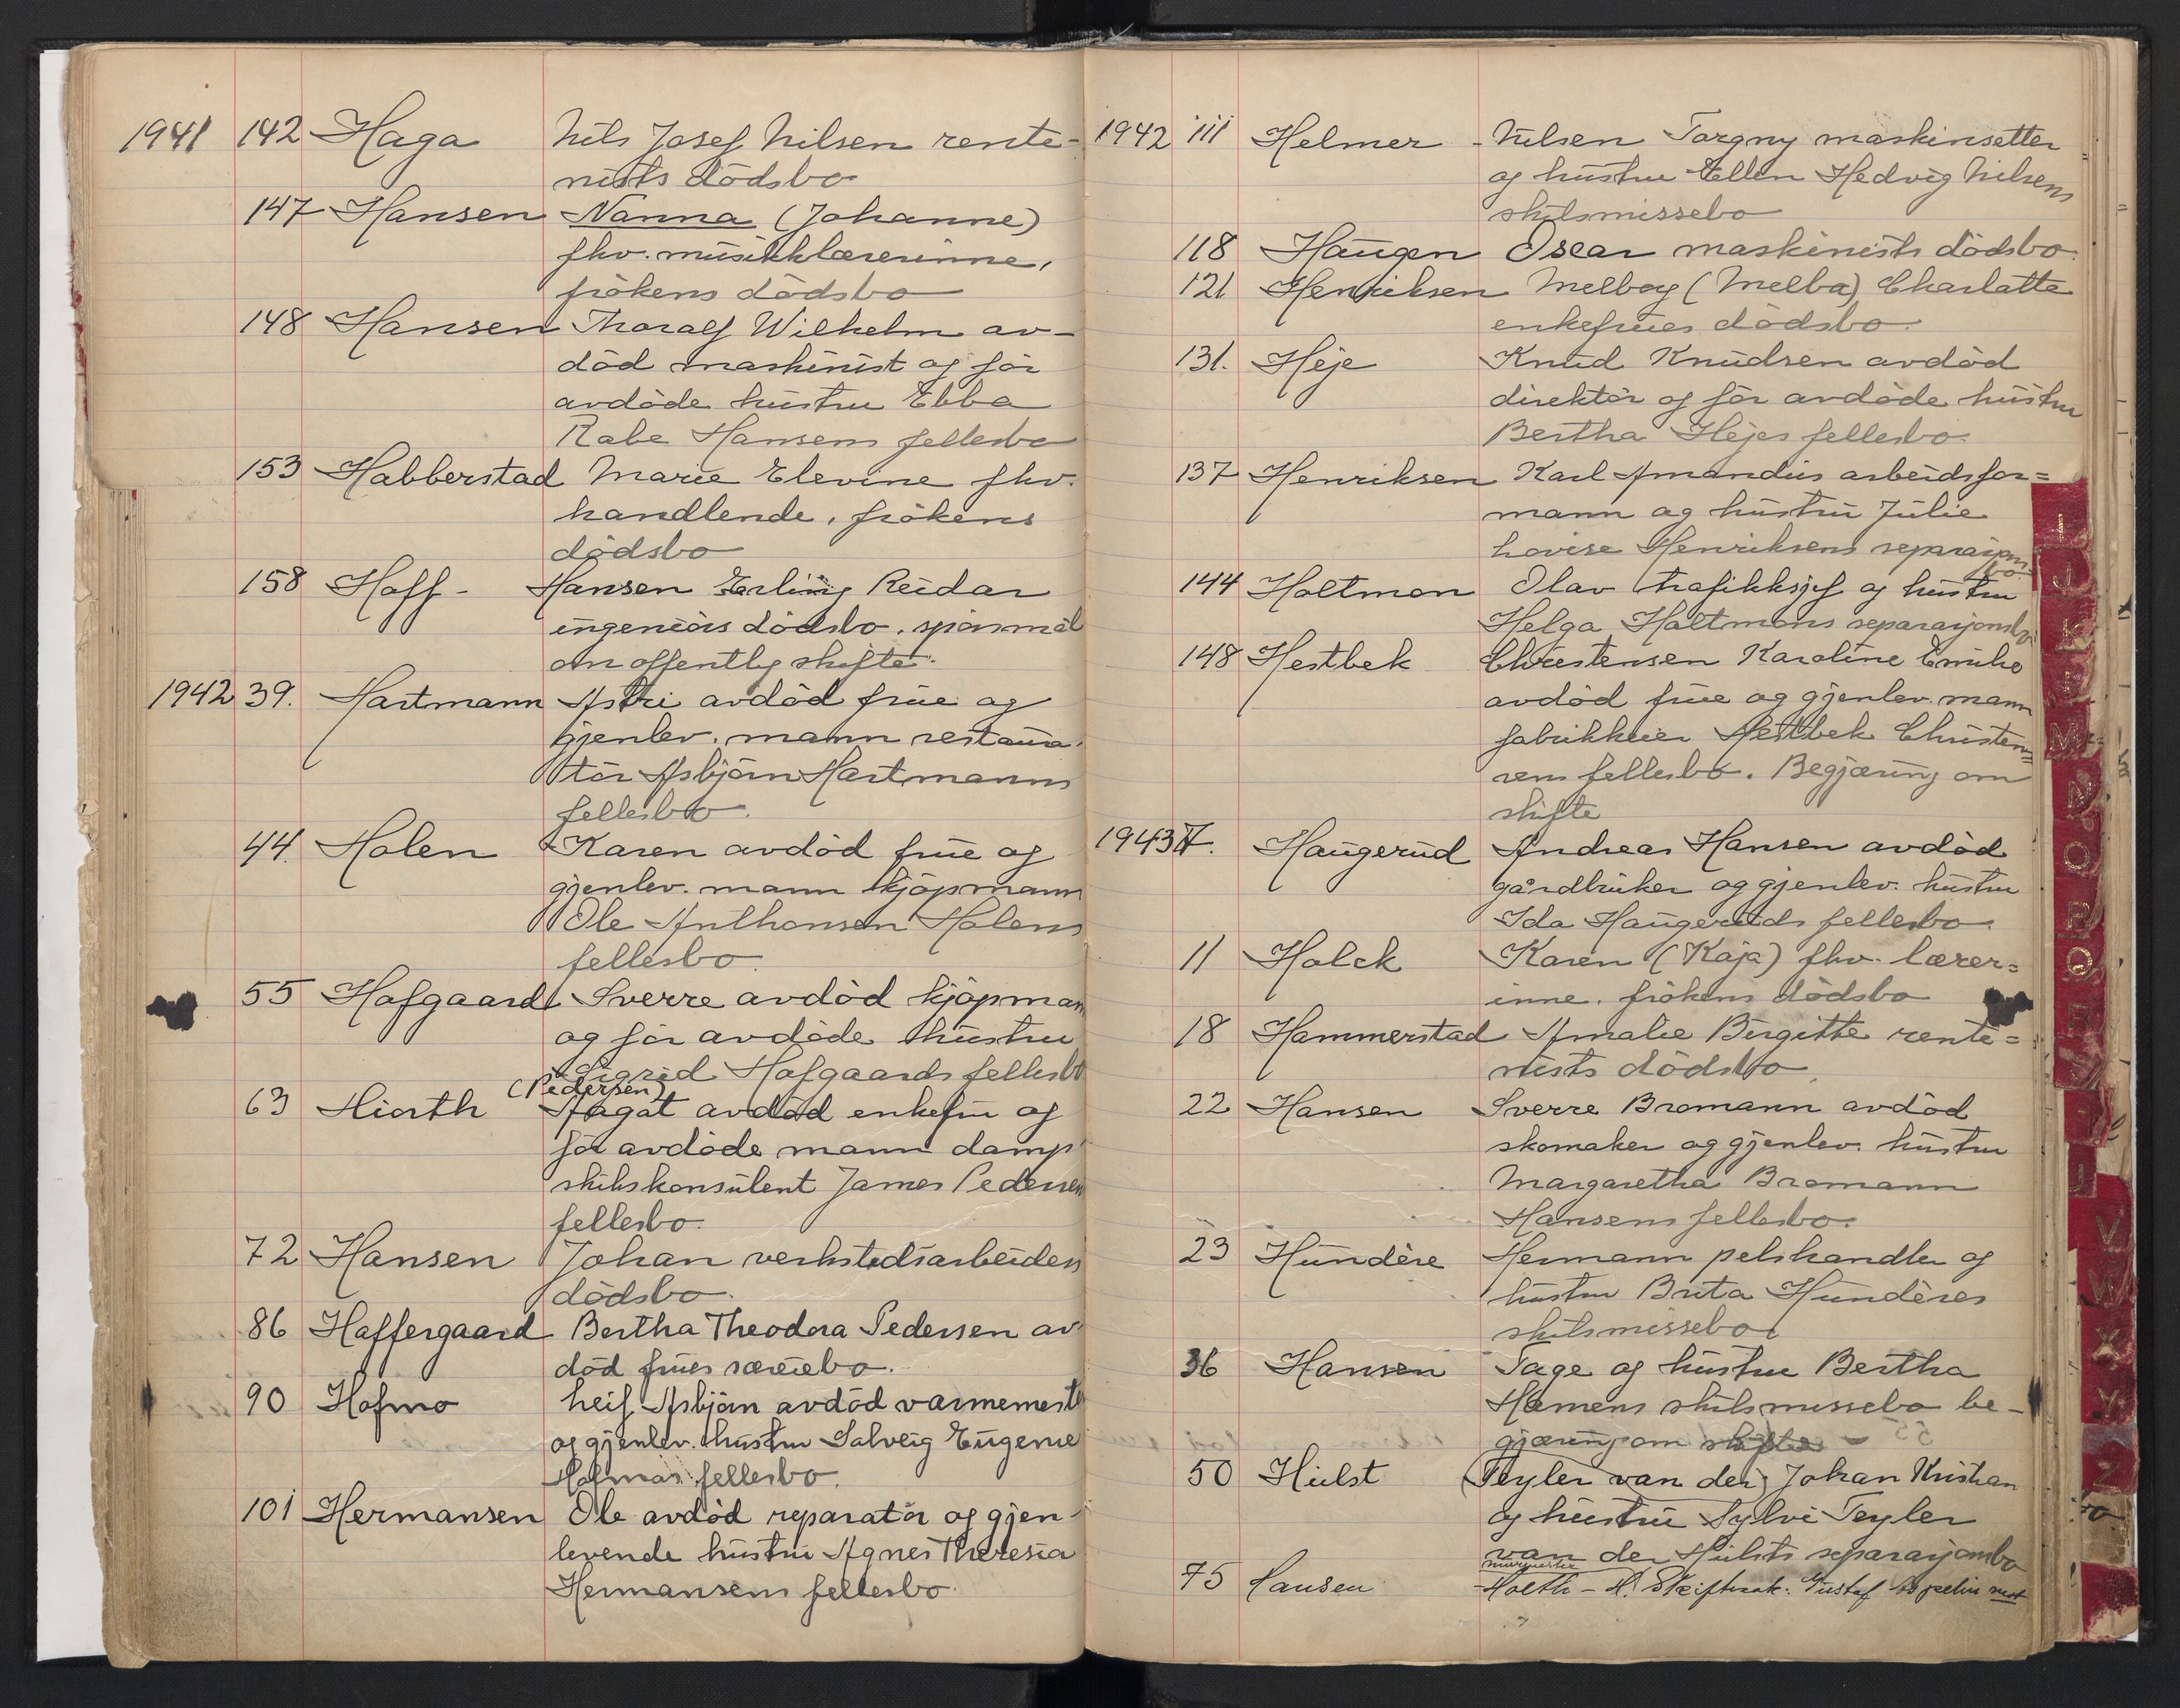 1941 142 Haga Nils Josef Nilsen rente-
nists dödsbo
147 Hansen Nanna (Johanne)
fhv. musikklærerinne,
frökens dödsbo
148 Hansen Thoralf Wilhelm av-
död maskinist og för
avdöde hustru Ebba
Rabe Hansens fellesbo
153 Habberstad Marie Elevine fhv.
handlende, frökens
dödsbo
158 Hoff- Hansen Erling Reidar
ingeniörs dödsbo, spörsmål
om offentlig skifte.
1942 39. Hartmann Astri avdöd frue og
gjenlev. mann restaura-
tör Asbjörn Hartmanns
fellesbo.
44. Holen Karen avdöd frue og
gjenlev. mann kjöpmann
Ole Anthonsen Holens
fellesbo.
55 Hofgaard Sverre avdöd kjöpmann
og för avdöde hustru
Sigrid Hofgaards fellesbo
(Pedersen)
63 Hiorth Aagot avdöd enkefru og
för avdöde mann damp
skibskonsulent James Pedersens
fellesbo.
72 Hansen Johan verkstedsarbeiders
dödsbo.
86 Haffergaard Bertha Theodora Pedersen av-
död frues særeiebo.
90 Hofmo Leif Asbjörn avdöd varmemester
og gjenlev. hustru Solveig Eugenie
Hofmos fellesbo.
101 Hermansen Ole avdöd reparatör og gjen-
levende hustru Agnes Theresia
Hermansens fellesbo.
1942 111 Helmer - Nilsen Torgny maskinsetter
og hustru Ellen Hedvig Nilsens
skilsmissebo
118 Haugen Oscar maskinists dödsbo
121 Henriksen Melborg (Melba) Charlotte
enkefrues dödsbo.
131. Heje Knud Knudsen avdöd
direktör og för avdöde hustru
Bertha Hejes fellesbo.
137 Henriksen Karl Amandus arbeidsfor=
mann og hustru Julie
Lovise Henriksens separasjons
bo.
144 Holtmon Olav trafikksjef og hustru
Helga Holtmons separasjonsbo
148 Hestbek Christensen Karoline Emilie
avdöd frue og gjenlev. mann
fabrikkeier Hestbek Christen=
sens fellesbo. Begjæring om
skifte
1943 7. Haugerud Andreas Hansen avdöd
gårdbruker og gjenlev. hustru
Ida Haugeruds fellesbo.
11 Holck Karen (Kaja) fhv. lærer=
inne, frökens dödsbo
18 Hammerstad Amalie Birgitte rente=
nists dödsbo.
22 Hansen Sverre Bromann avdöd
skomaker og gjenlev. hustru
Margaretha Bromann
Hansens fellesbo.
23 Hundère Hermann pelshandler og
hustru Brita Hundères
skilsmissebo
36 Hansen Tage og hustru Bertha
Hansens skilsmissebo be-
gjæring om skifte
50 Hulst (Teyler van der) Johan Kristian
og hustru Sylvi Teyler
van der Hulsts separasjonsbo
murmester
75 Hansen Holth - H. Gustaf
I
J
K
L
M
N
O
P
Q
R
S
T
U
V
W
X
Y
Z